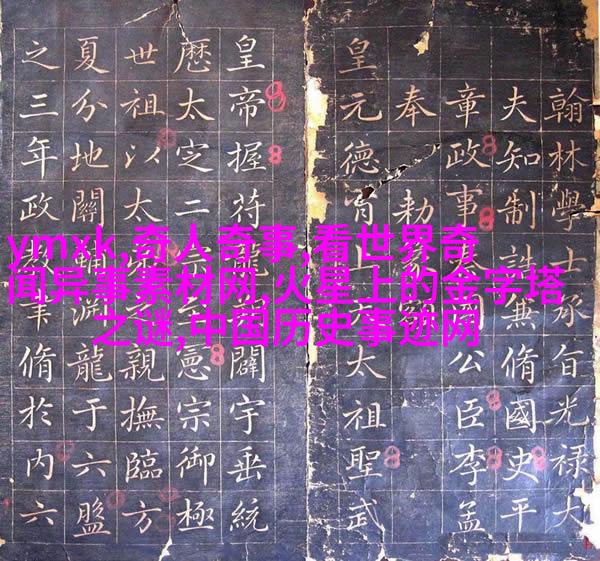 ymxk,奇人奇事,看世界奇
闻异事素材网,火星上的金字塔
之谜,中国历史事迹网
翰林學士承旨光祿大
夫知制誥兼脩國史平
章政事國公臣李孟
奉勅
皇元德太祖聖武
皇帝握符龍闢宇垂統
厯太定二宗憲宗御極
世祖以太弟之親撫臨方
夏分地關輔淵龍于六盤
之三年政脩於内六